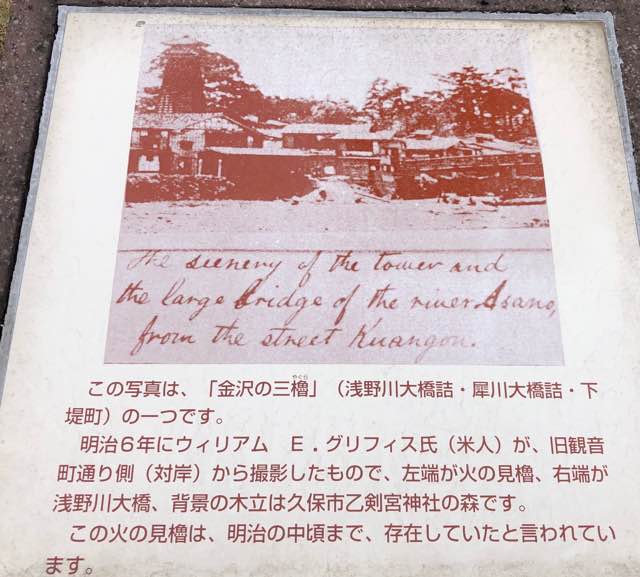 The scenery of the tower and
the large bridge of the river Asano,
from the street Kuangon.
この写真は、「金沢の三櫓」（浅野川大橋詰・犀川大橋詰・下
やぐら
堤町）の一つです。
明治6年にウィリアム　E．グリフィス氏（米人）が、旧観音
町通り側（対岸）から撮影したもので、左端が火の見櫓、右端が
浅野川大橋、背景の木立は久保市乙剣宮神社の森です。
この火の見櫓は、明治の中頃まで、存在していたと言われてい
ます。